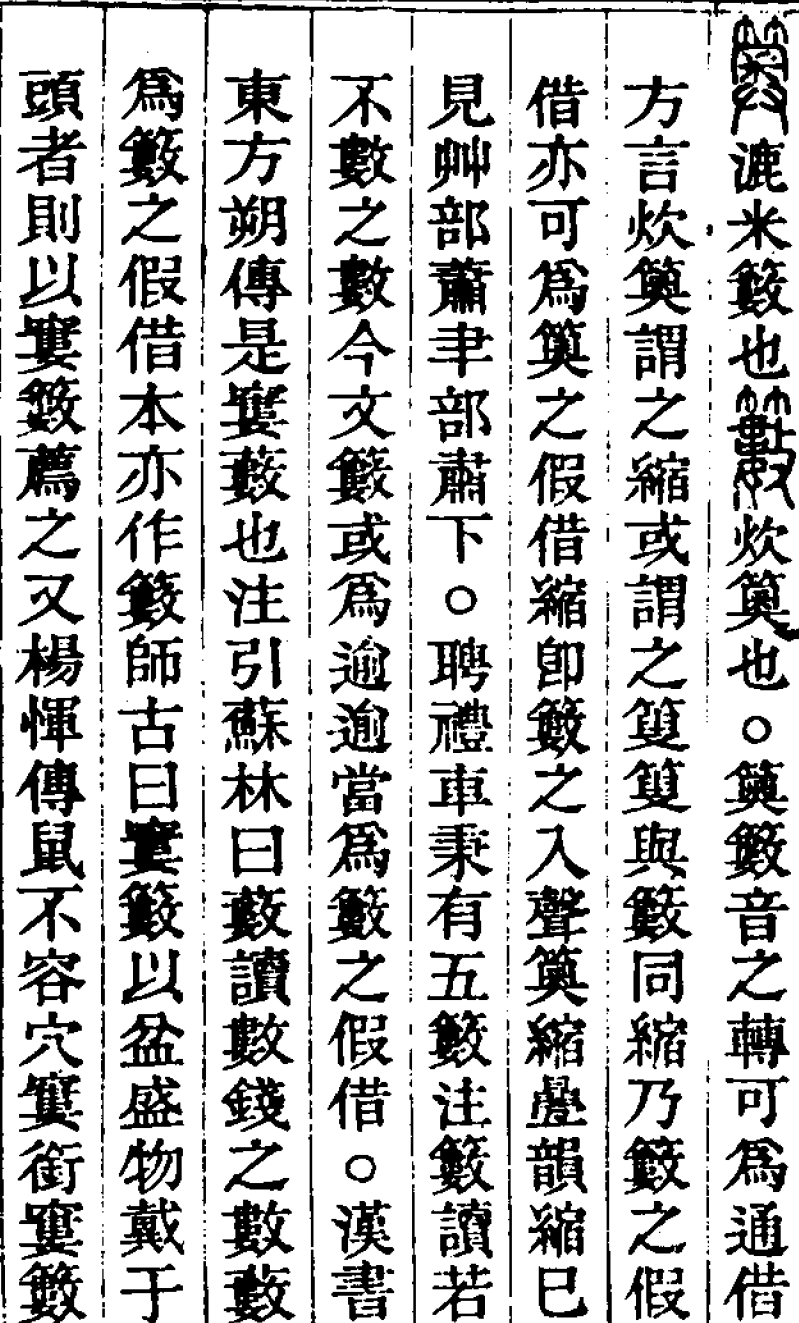 䉛漉米籔也籔炊䉛也○䉛籔音之轉可爲通借
方言炊䉛謂之縮或謂之䈹䈹與籔同縮乃籔之假
借亦可爲䉛之假借縮卽籔之入聲䉛縮疊韻縮巳
見艸部蕭聿部肅下○聘禮車秉有五籔注籔讀若
不數之數今文籔或爲逾逾當爲籔之假借○漢書
東方朔傳是寠藪也注引蘇林曰藪讀數錢之數藪
爲籔之假借本亦作籔師古曰寠籔以盆盛物戴于
頭者則以寠籔薦之又楊惲傳鼠不容穴寠銜窶籔